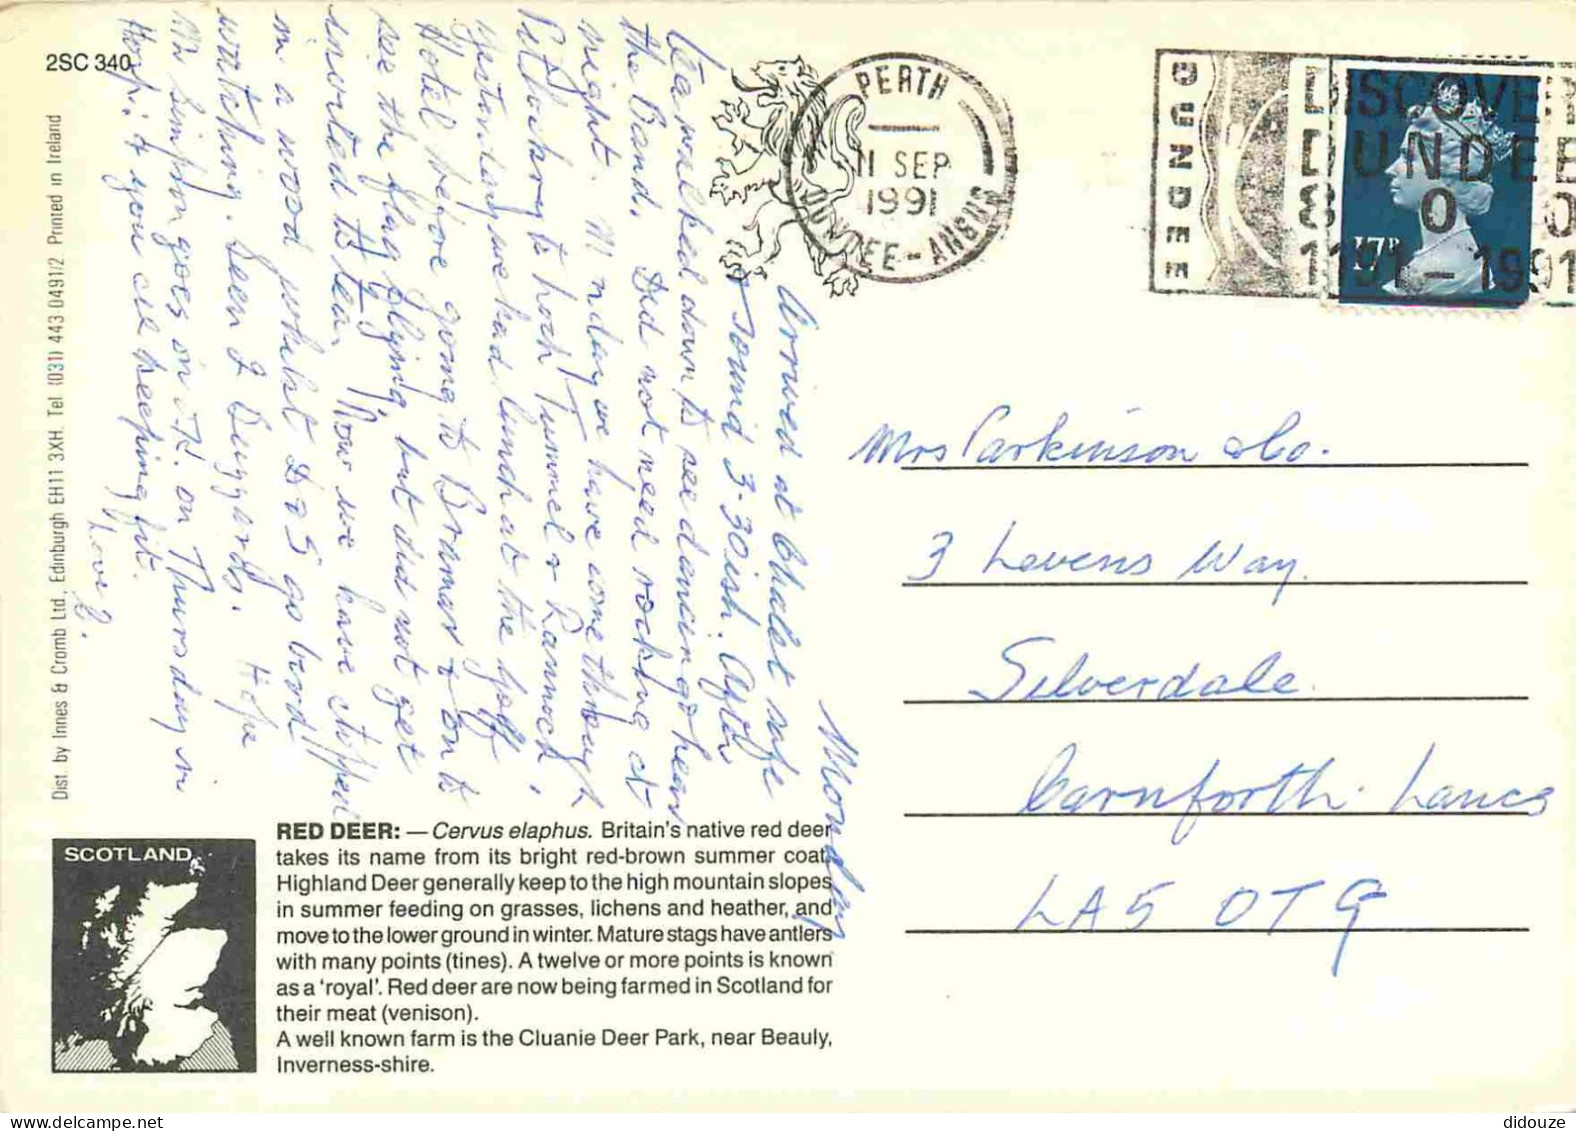 2SC 340
Dist. by Innes & Cromb Ltd., Edinburgh EH11 3XH. Tel (031) 443 0491/2 Printed in Ireland
PERTH
11 SEP
1991
DUNDEE - ANGUS
DUNDEE
DISCOVER
DUNDEE
800
1191 - 1991
17P
Monday
Arrived at Chalet safe
& sound 3-30ish. After
tea walked down to see dancing & hear
the Band. Did not need rocking at
night. Monday we have come through
Pitlochry to Loch Tummel & Rannoch,
yesterday we had lunch at the Golf
Hotel before going to Braemar & on to
see the flag flying, but did not get
invited to tea. Now we have stopped
in a wood whilst D & S go bird
watching. Seen 2 Buzzards. Hope
Mr Simpson goes in O.K. on Thursday in
Hosp: & you are keeping fit.
Love
Mrs Parkinson & Co.
3 Levens Way.
Silverdale.
Carnforth. Lancs
LA5 0TG
SCOTLAND
RED DEER: — Cervus elaphus. Britain's native red deer
takes its name from its bright red-brown summer coat.
Highland Deer generally keep to the high mountain slopes
in summer feeding on grasses, lichens and heather, and
move to the lower ground in winter. Mature stags have antlers
with many points (tines). A twelve or more points is known
as a 'royal'. Red deer are now being farmed in Scotland for
their meat (venison).
A well known farm is the Cluanie Deer Park, near Beauly,
Inverness-shire.
delcampe.net
didouze